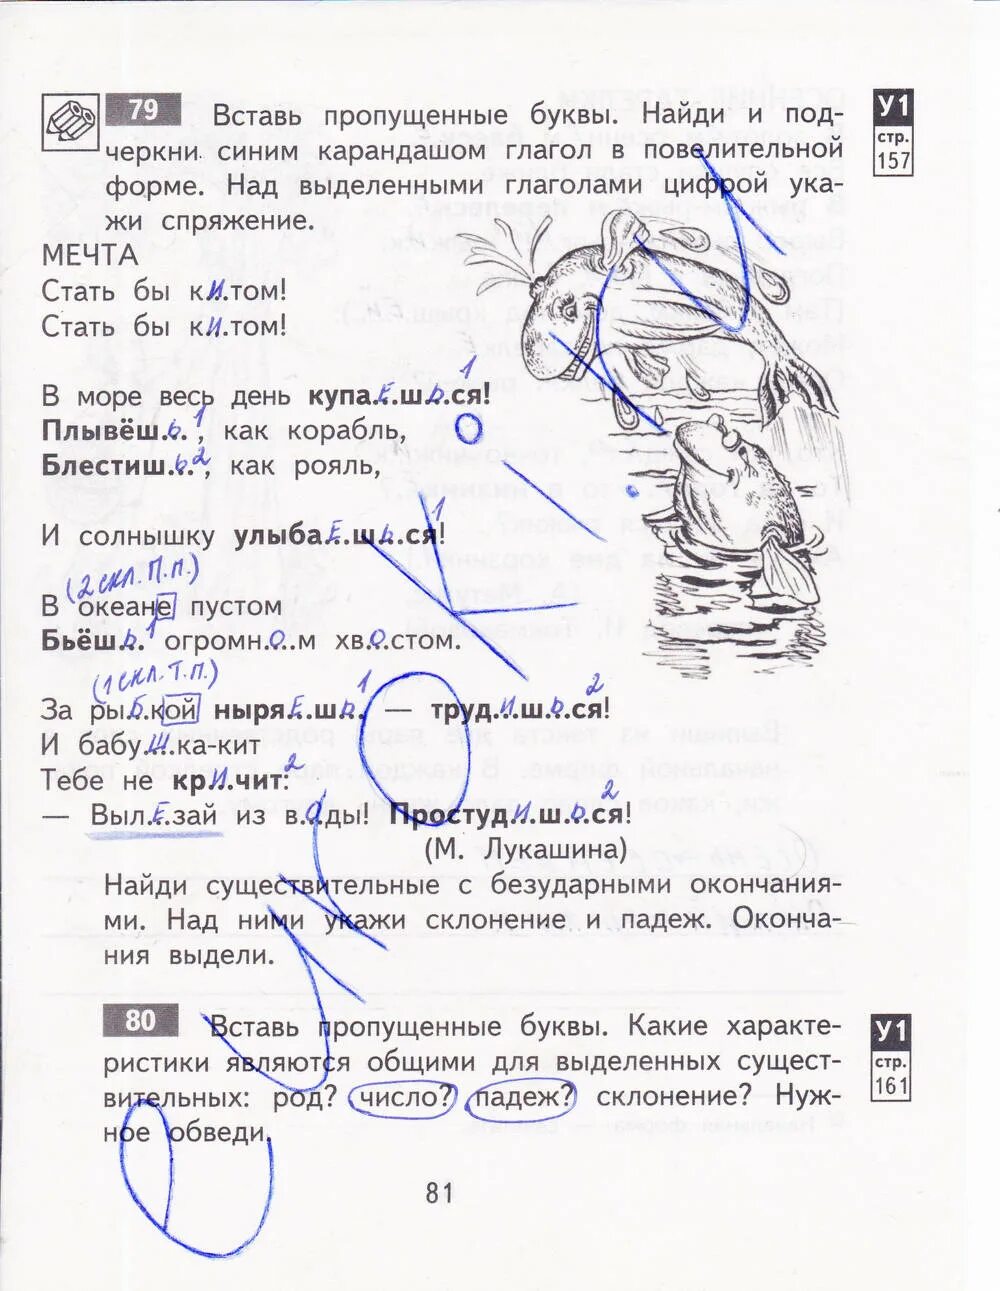 79 Вставь пропущенные буквы. Найди и под-
черкни синим карандашом глагол в повелительной
форме. Над выделенными глаголами цифрой ука-
жи спряжение.
У1
стр.
157
МЕЧТА
Стать бы к.И.том!
Стать бы к.И.том!
В море весь день купа.Е.ш.Ь.ся! 1
Плывёш.Ь. 1, как корабль,
Блестиш.Ь. 2, как рояль,
И солнышку улыба.Е.ш.Ь.ся! 1
(2 скл. П.п.)
В океане пустом
Бьёш.Ь. 1 огромн.О.м хв.О.стом.
(1 скл. Т.п.)
За ры.Б.кой ныря.Е.ш.Ь. 1 — труд.И.ш.Ь.ся! 2
И бабу.Ш.ка-кит
Тебе не кр.И.чит: 2
— Выл.Е.зай из в.О.ды! Простуд.И.ш.Ь.ся! 2
(М. Лукашина)
Найди существительные с безударными окончания-
ми. Над ними укажи склонение и падеж. Оконча-
ния выдели.
80 Вставь пропущенные буквы. Какие характе-
ристики являются общими для выделенных сущест-
вительных: род? число? падеж? склонение? Нуж-
ное обведи.
У1
стр.
161
81